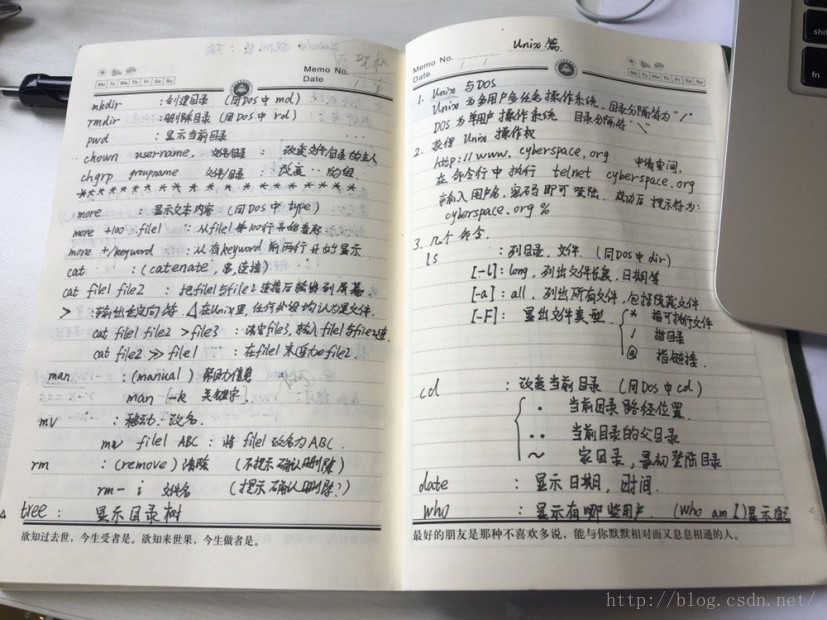 Memo No.
Date
Mo Tu We Th Fr Sa Su
mkdir : 创建目录 (同DOS中 md)
rmdir : 删除目录 (同DOS中 rd)
pwd : 显示当前目录
chown username, 文件/目录 : 改变文件/目录的主人
chgrp groupname 文件/目录 : 改变 ·· 的组
more : 显示文本内容 (同DOS中 type)
more +100 file1 : 从file1第100行开始看起
more +/keyword : 从有keyword前两行开始显示
cat : (catenate, 串,连接)
cat file1 file2 : 把file1与file2连接后输出到屏幕
> : 输出重定向符 △在Unix里,任何外设均认为是文件.
cat file1 file2 > file3 : 清空file3, 输入file1与file2
cat file2 >> file1 : 在file1末追加file2
man : (manual) 帮助信息
man [-k 关键字]
mv : 移动. 改名.
mv file1 ABC : 将 file1 改名为ABC
rm : (remove) 清除 (不提示确认即删除)
rm -i 文件名 (提示确认即删除?)
△ tree : 显示目录树
欲知过去世，今生受者是。欲知来世果，今生做者是。
Unix篇.
Memo No.
Date
Mo Tu We Th Fr Sa Su
1. Unix 与DOS
Unix 为多用户多任务操作系统. 目录分隔符为"/"
DOS 为单用户操作系统 目录分隔符"\"
2. 获得 Unix 操作权
http://www.cyberspace.org
在命令行中执行 telnet cyberspace.org
输入用户名.密码即可登陆. 成功后提示符为:
cyberspace.org %
3. 几个命令.
ls : 列目录.文件. (同DOS中dir)
[-l]: long, 列出文件长度,日期等
[-a]: all, 列出所有文件,包括隐藏文件
[-F]: 显出文件类型.
* 指可执行文件
/ 指目录
@ 指链接.
cd : 改变当前目录 (同DOS中cd)
. 当前目录路径位置.
.. 当前目录的父目录
~ 家目录, 最初登陆目录
date : 显示日期,时间.
who : 显示有哪些用户. (who am I)显示
最好的朋友是那种不喜欢多说，能与你默默相对而又息息相通的人。
fn
http://blog.csdn.net/